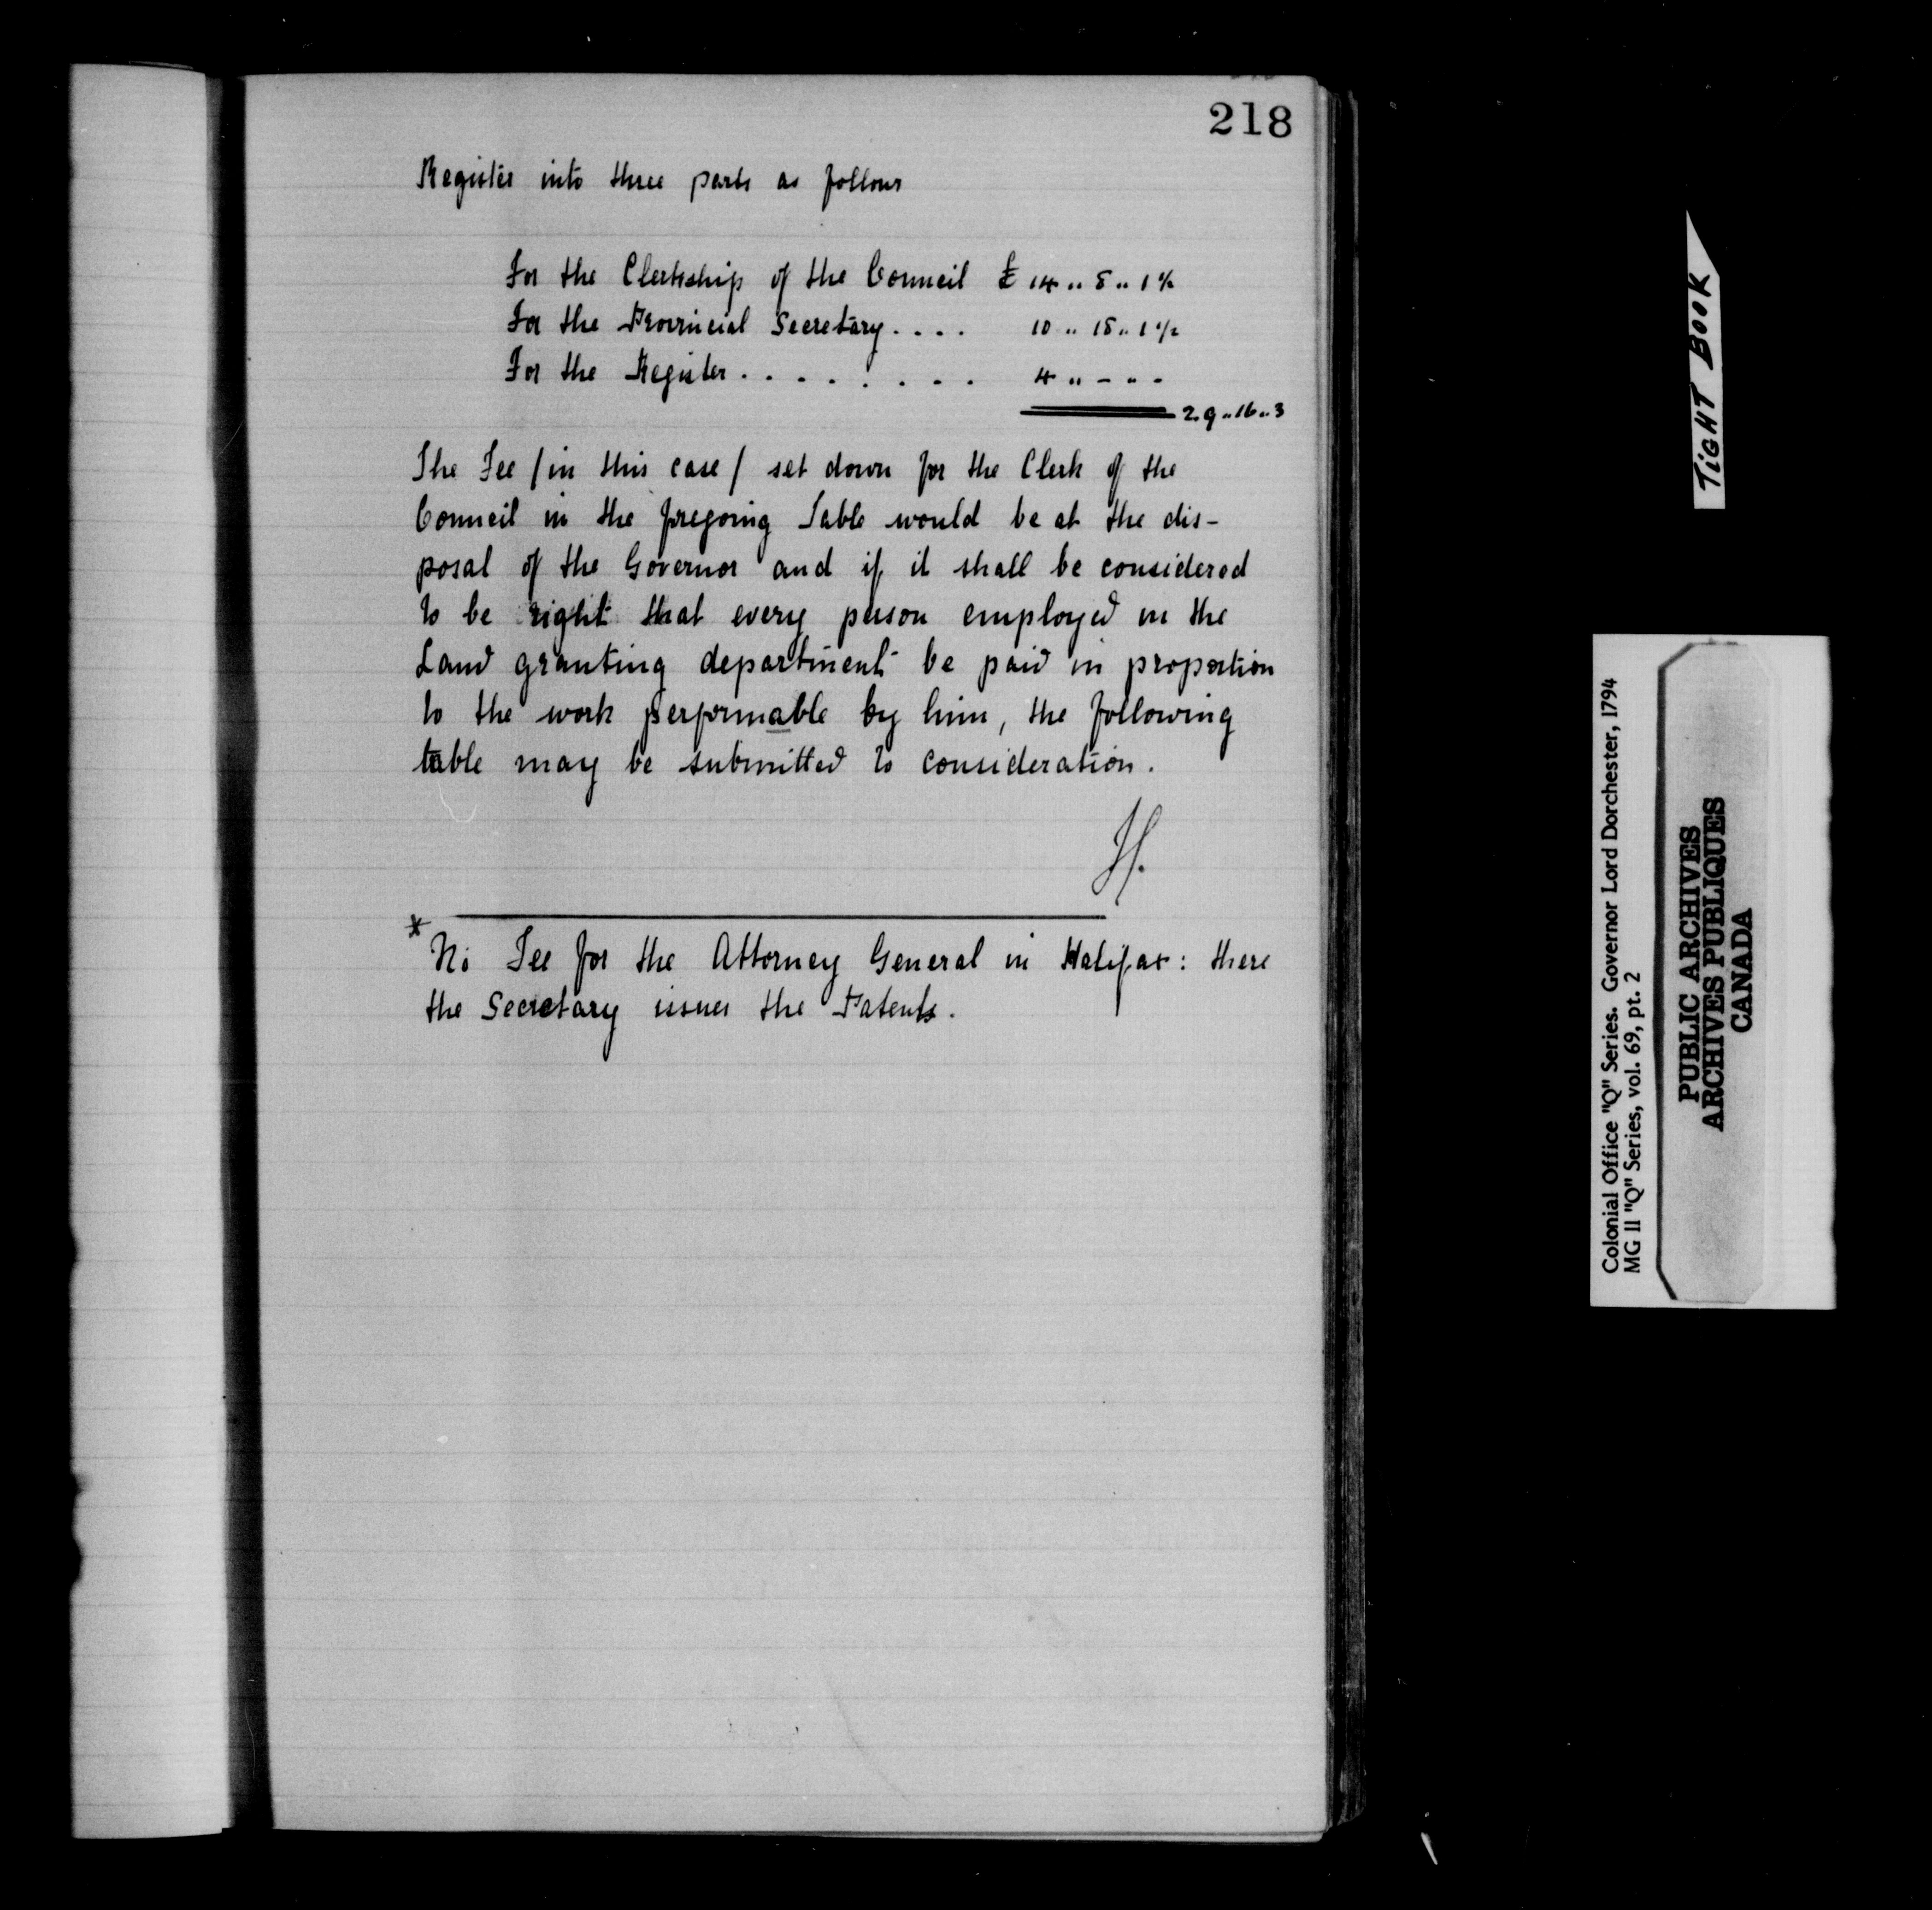 218
Register into three parts as follows
For the Clerkship of the Council £ 14 .. 8 .. 1 ½
For the Provincial Secretary . . . . 10 .. 18 .. 1 ½
For the Register . . . . . . . . . 4 .. - .. -
2.9 .. 16 .. 3
The Fee / in this case / set down for the Clerk of the
Council in the foregoing Table would be at the dis-
posal of the Governor and if it shall be considered
to be right that every person employed in the
Land granting department be paid in proportion
to the work performable by him, the following
table may be submitted to consideration.
H.
* No Fee for the Attorney General in Halifax : there
the Secretary issues the Patents.
TIGHT BOOK
Colonial Office "Q" Series. Governor Lord Dorchester, 1794
MG 11 "Q" Series, vol. 69, pt. 2
PUBLIC ARCHIVES
ARCHIVES PUBLIQUES
CANADA